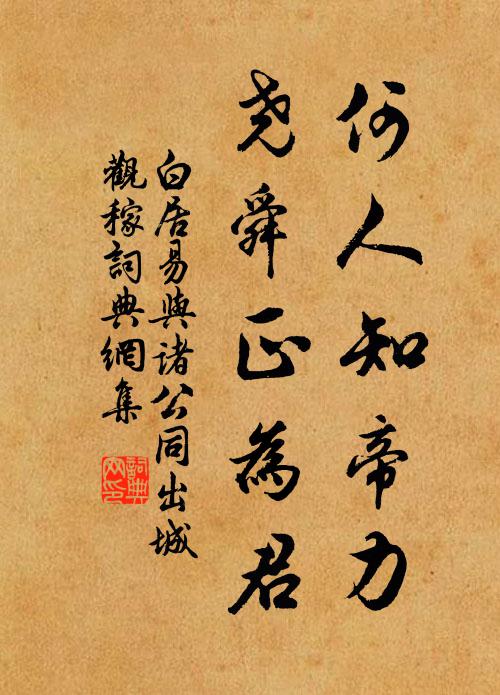 何人知帝力
堯舜正為君
白居易與諸公同出城
觀稼詞典網集
詞典
网印